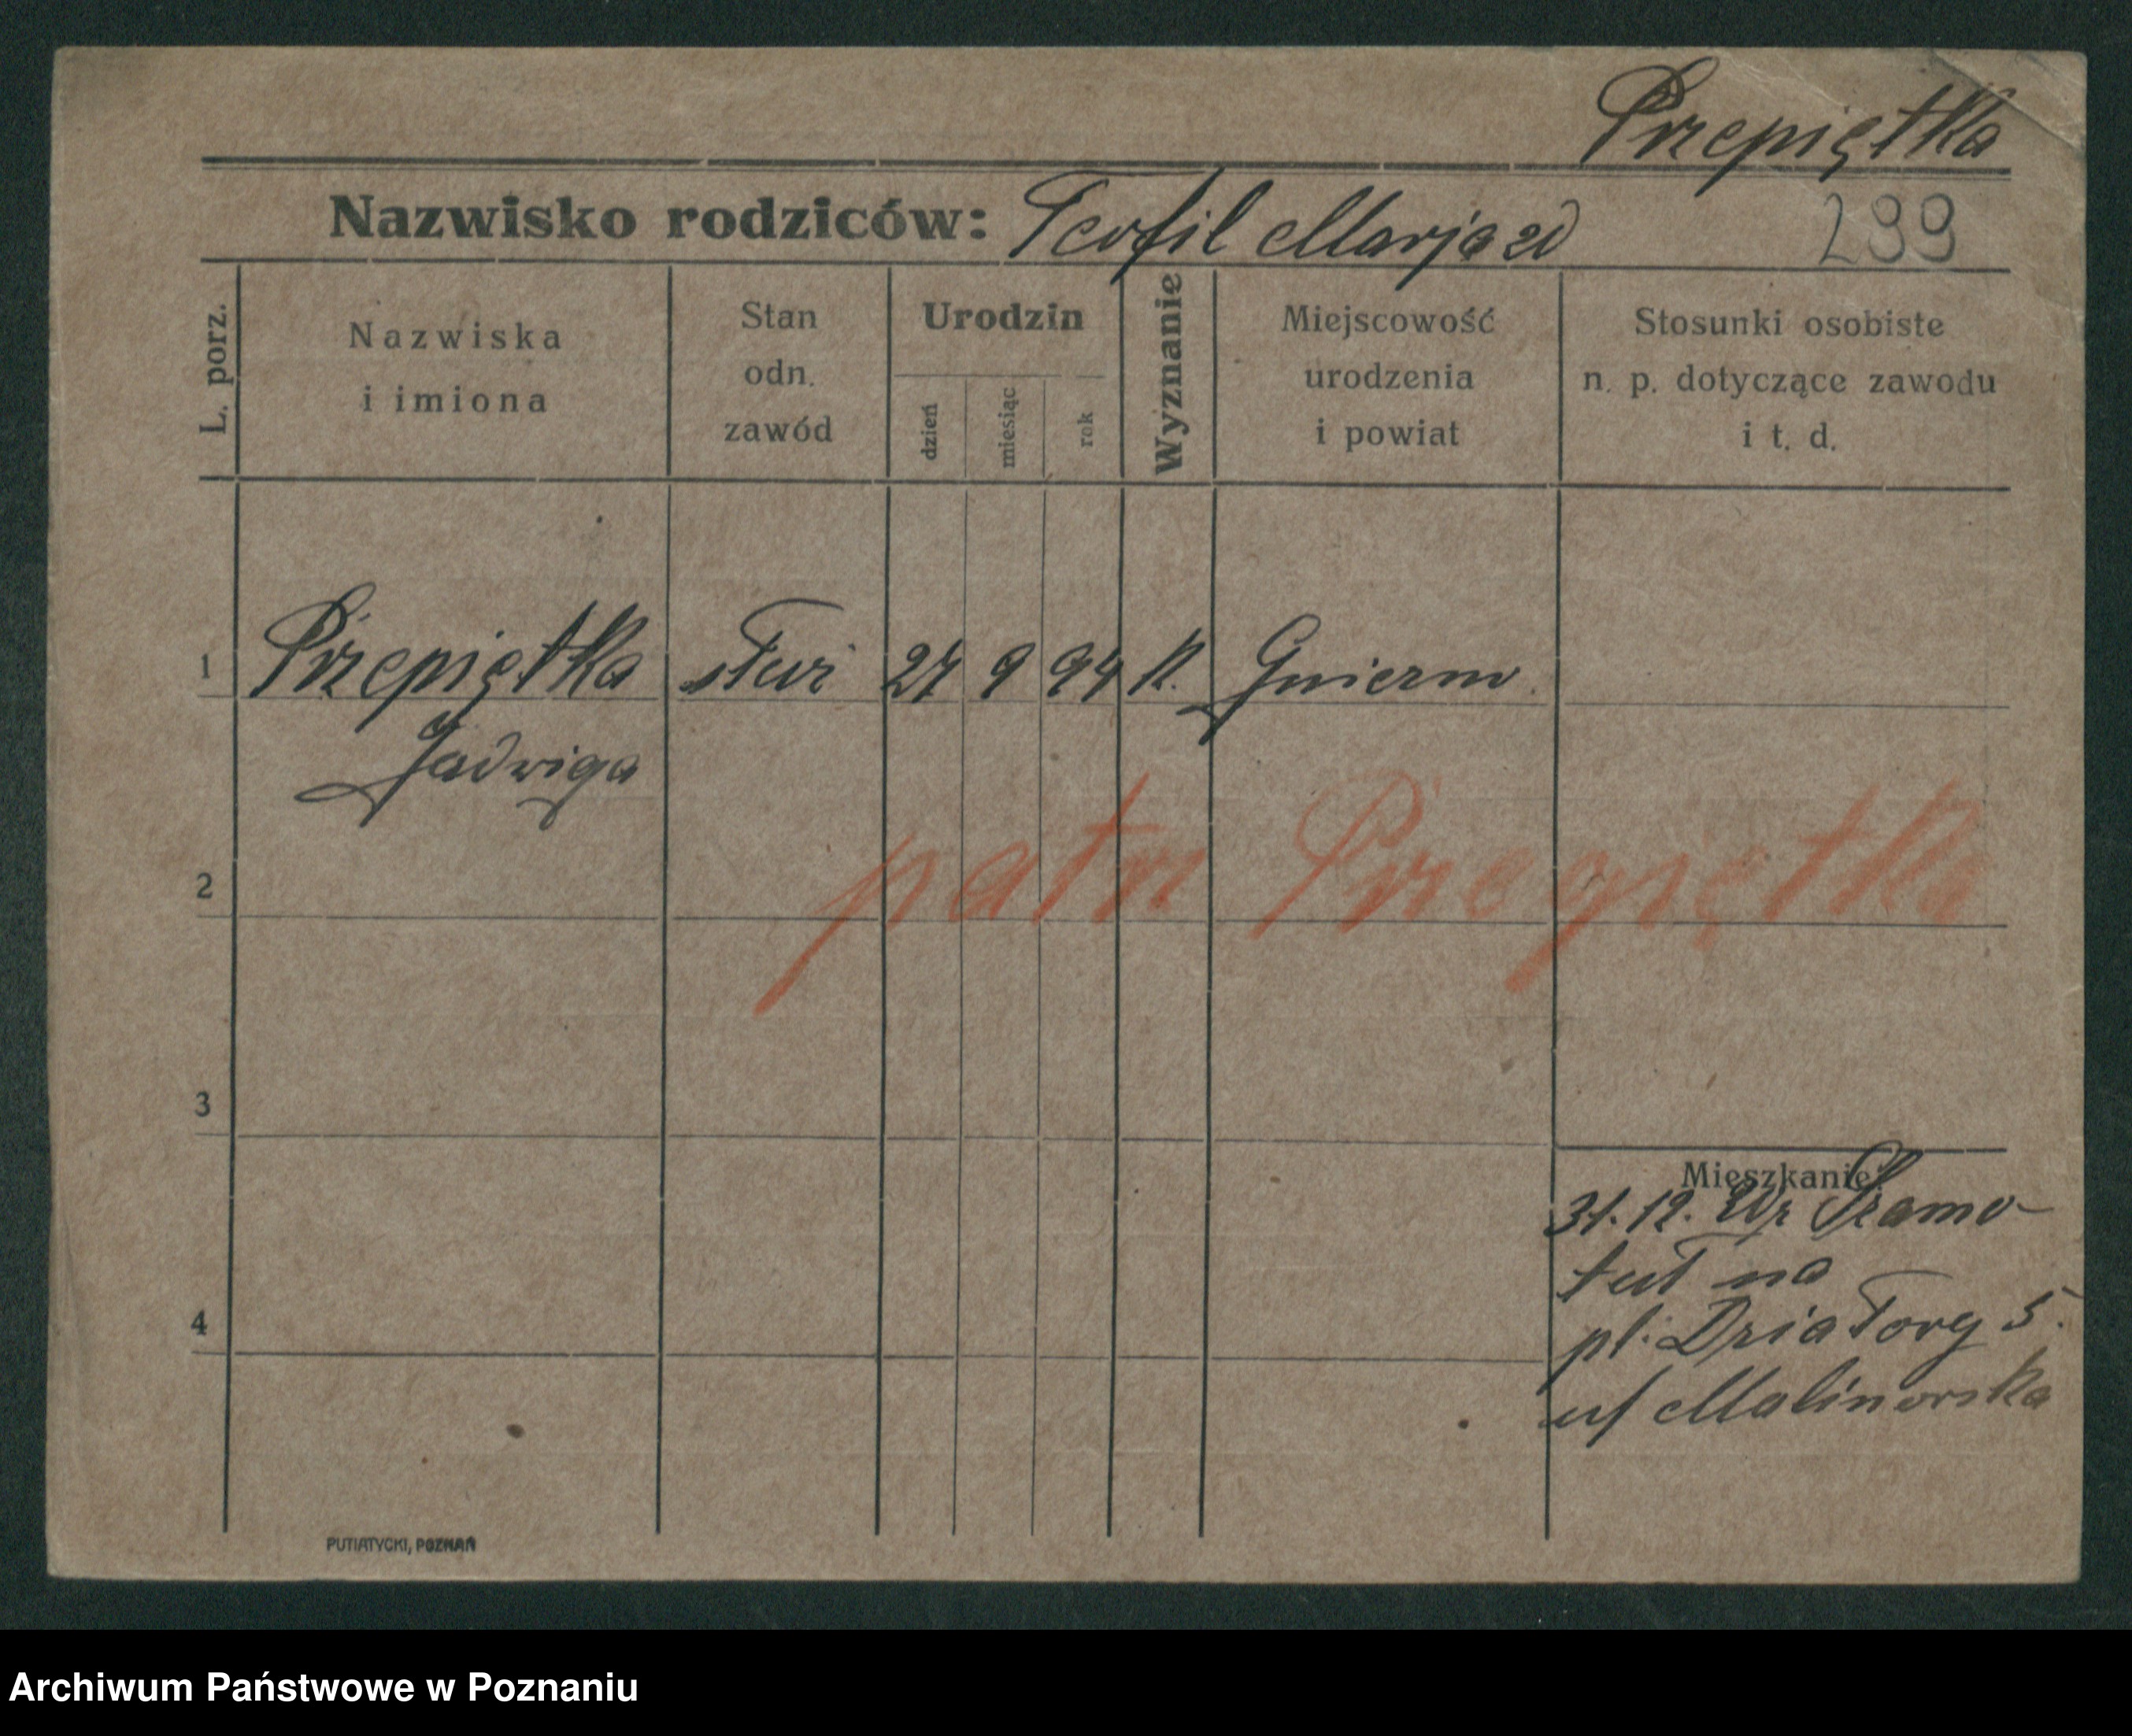 Przepiętka
Nazwisko rodziców: Teofil Marja
299
L. porz.
Nazwiska
i imiona
Stan
odn.
zawód
Urodzin
dzień
miesiąc
rok
Wyznanie
Miejscowość
urodzenia
i powiat
Stosunki osobiste
n. p. dotyczące zawodu
i t. d.
1 Przepiętka 27 9 94 K.
Jadwiga
2 patrz Przegiętka
3
4
Mieszkanie:
31. 12. Szamo-
tuł na
pl. Działowy 5.
u/ Malinowska
PUTIATYCKI, POZNAŃ
Archiwum Państwowe w Poznaniu